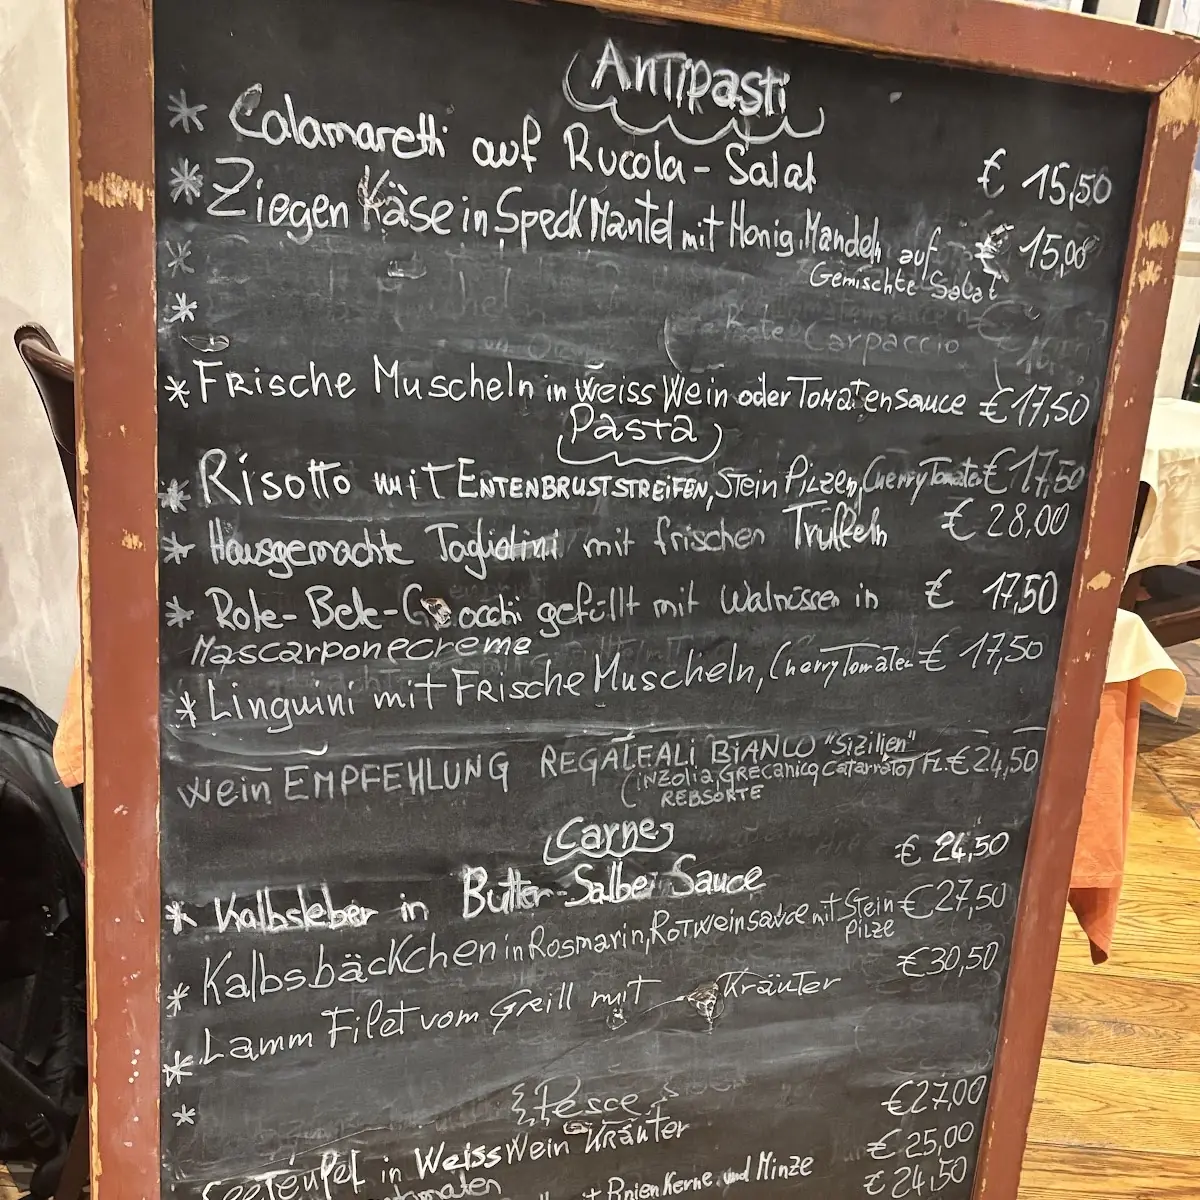 Antipasti
* Calamaretti auf Rucola-Salat € 15,50
* Ziegen Käse in Speck Mantel mit Honig, Mandeln auf € 15,00
Gemischte Salat
*
* Carpaccio
* Frische Muscheln in Weiss Wein oder Tomatensauce € 17,50
Pasta
* Risotto mit Entenbruststreifen, Stein Pilzen, Cherry Tomaten € 17,50
* Hausgemachte Tagliolini mit frischen Trüffeln € 28,00
* Rote-Bete-Gnocchi gefüllt mit Walnüssen in € 17,50
Mascarponecreme
* Linguini mit Frische Muscheln, Cherry Tomaten € 17,50
Wein EMPFEHLUNG REGALEALI BIANCO "Sizilien"
(INZOLIA, GRECANICO, Catarrato) FL. € 24,50
REBSORTE
Carne
* Kalbsleber in Butter-Salbei Sauce € 24,50
* Kalbsbäckchen in Rosmarin, Rotweinsauce mit Stein € 27,50
Pilze
* Lamm Filet vom Grill mit Kräuter € 30,50
*
Pesce
Seeteufel in Weiss Wein Kräuter € 27,00
tomaten € 25,00
Pnienkerne und Minze € 24,50